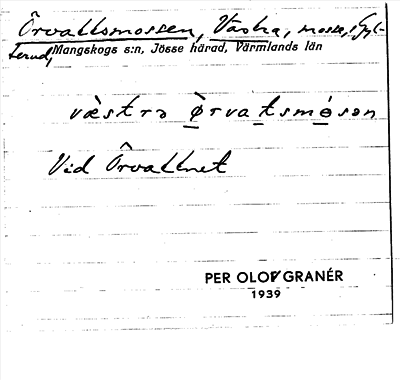 Örvattsmossen, Västra, mosse, i Gyl-
terud,
Mangskogs s:n, Jösse härad, Värmlands län
væ̀strə ø̀rvatsmósən
Vid Örvattnet
PER OLOF GRANÉR
1939